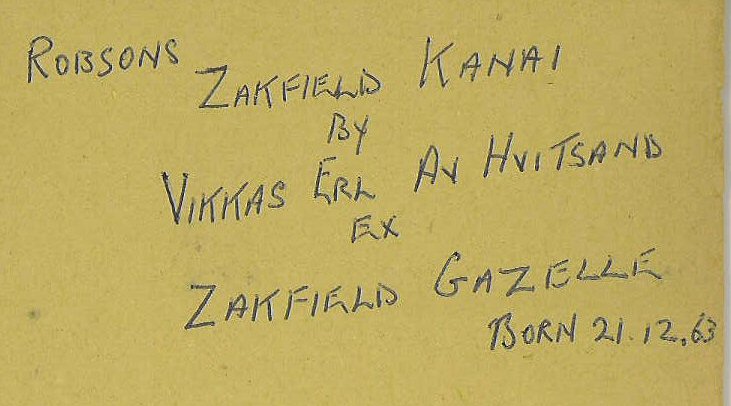 ROBSONS
ZAKFIELD KANAI
BY
VIKKAS ERL AV HVITSAND
EX
ZAKFIELD GAZELLE
BORN 21.12.63